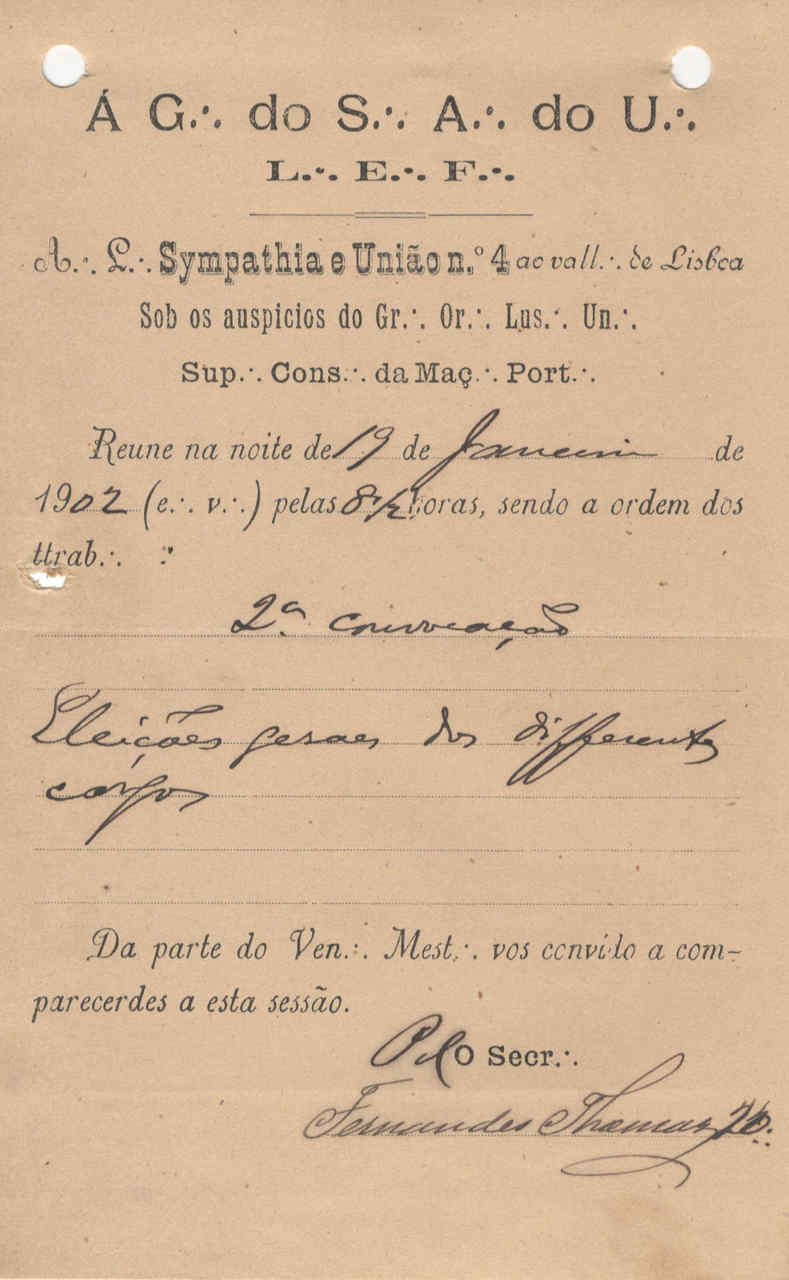 Á G.·. do S.·. A.·. do U.·.
L.·. E.·. F.·.
A.·. L.·. Sympathia e União n.º 4 ao vall.·. de Lisboa
Sob os auspicios do Gr.·. Or.·. Lus.·. Un.·.
Sup.·. Cons.·. da Maç.·. Port.·.
Reune na noite de 19 de Janeiro de
1902 (e.·. v.·.) pelas 8 1/2 horas, sendo a ordem dos
ttrab.·. :
2ª convocação
Eleições geraes dos differentes
cargos
Da parte do Ven.·. Mest.·. vos convido a com-
parecerdes a esta sessão.
Pel O Secr.·.
Fernandes Thomaz